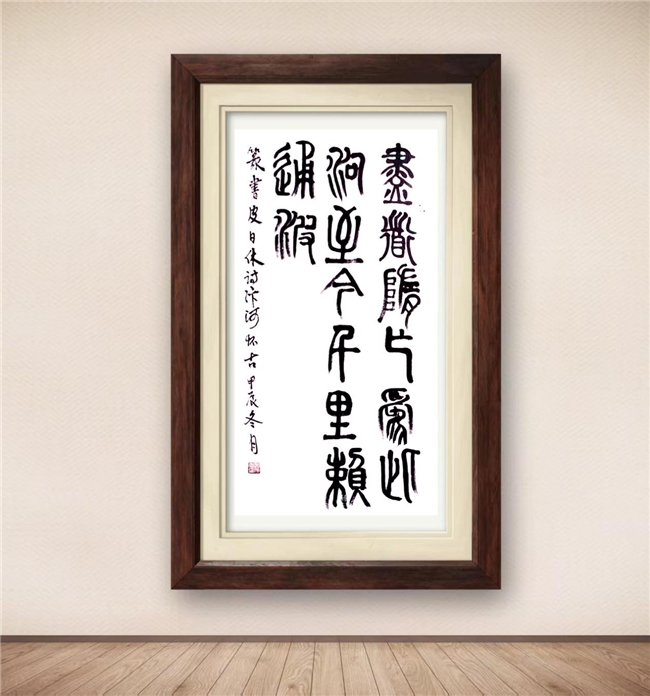 盡道隋亡為此
河至今千里賴
通波
篆書皮日休詩汴河懷古甲辰冬月